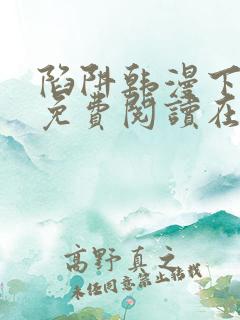 陷阱韩漫下
免費閱讀在
高野真之
未任同意禁止轉載